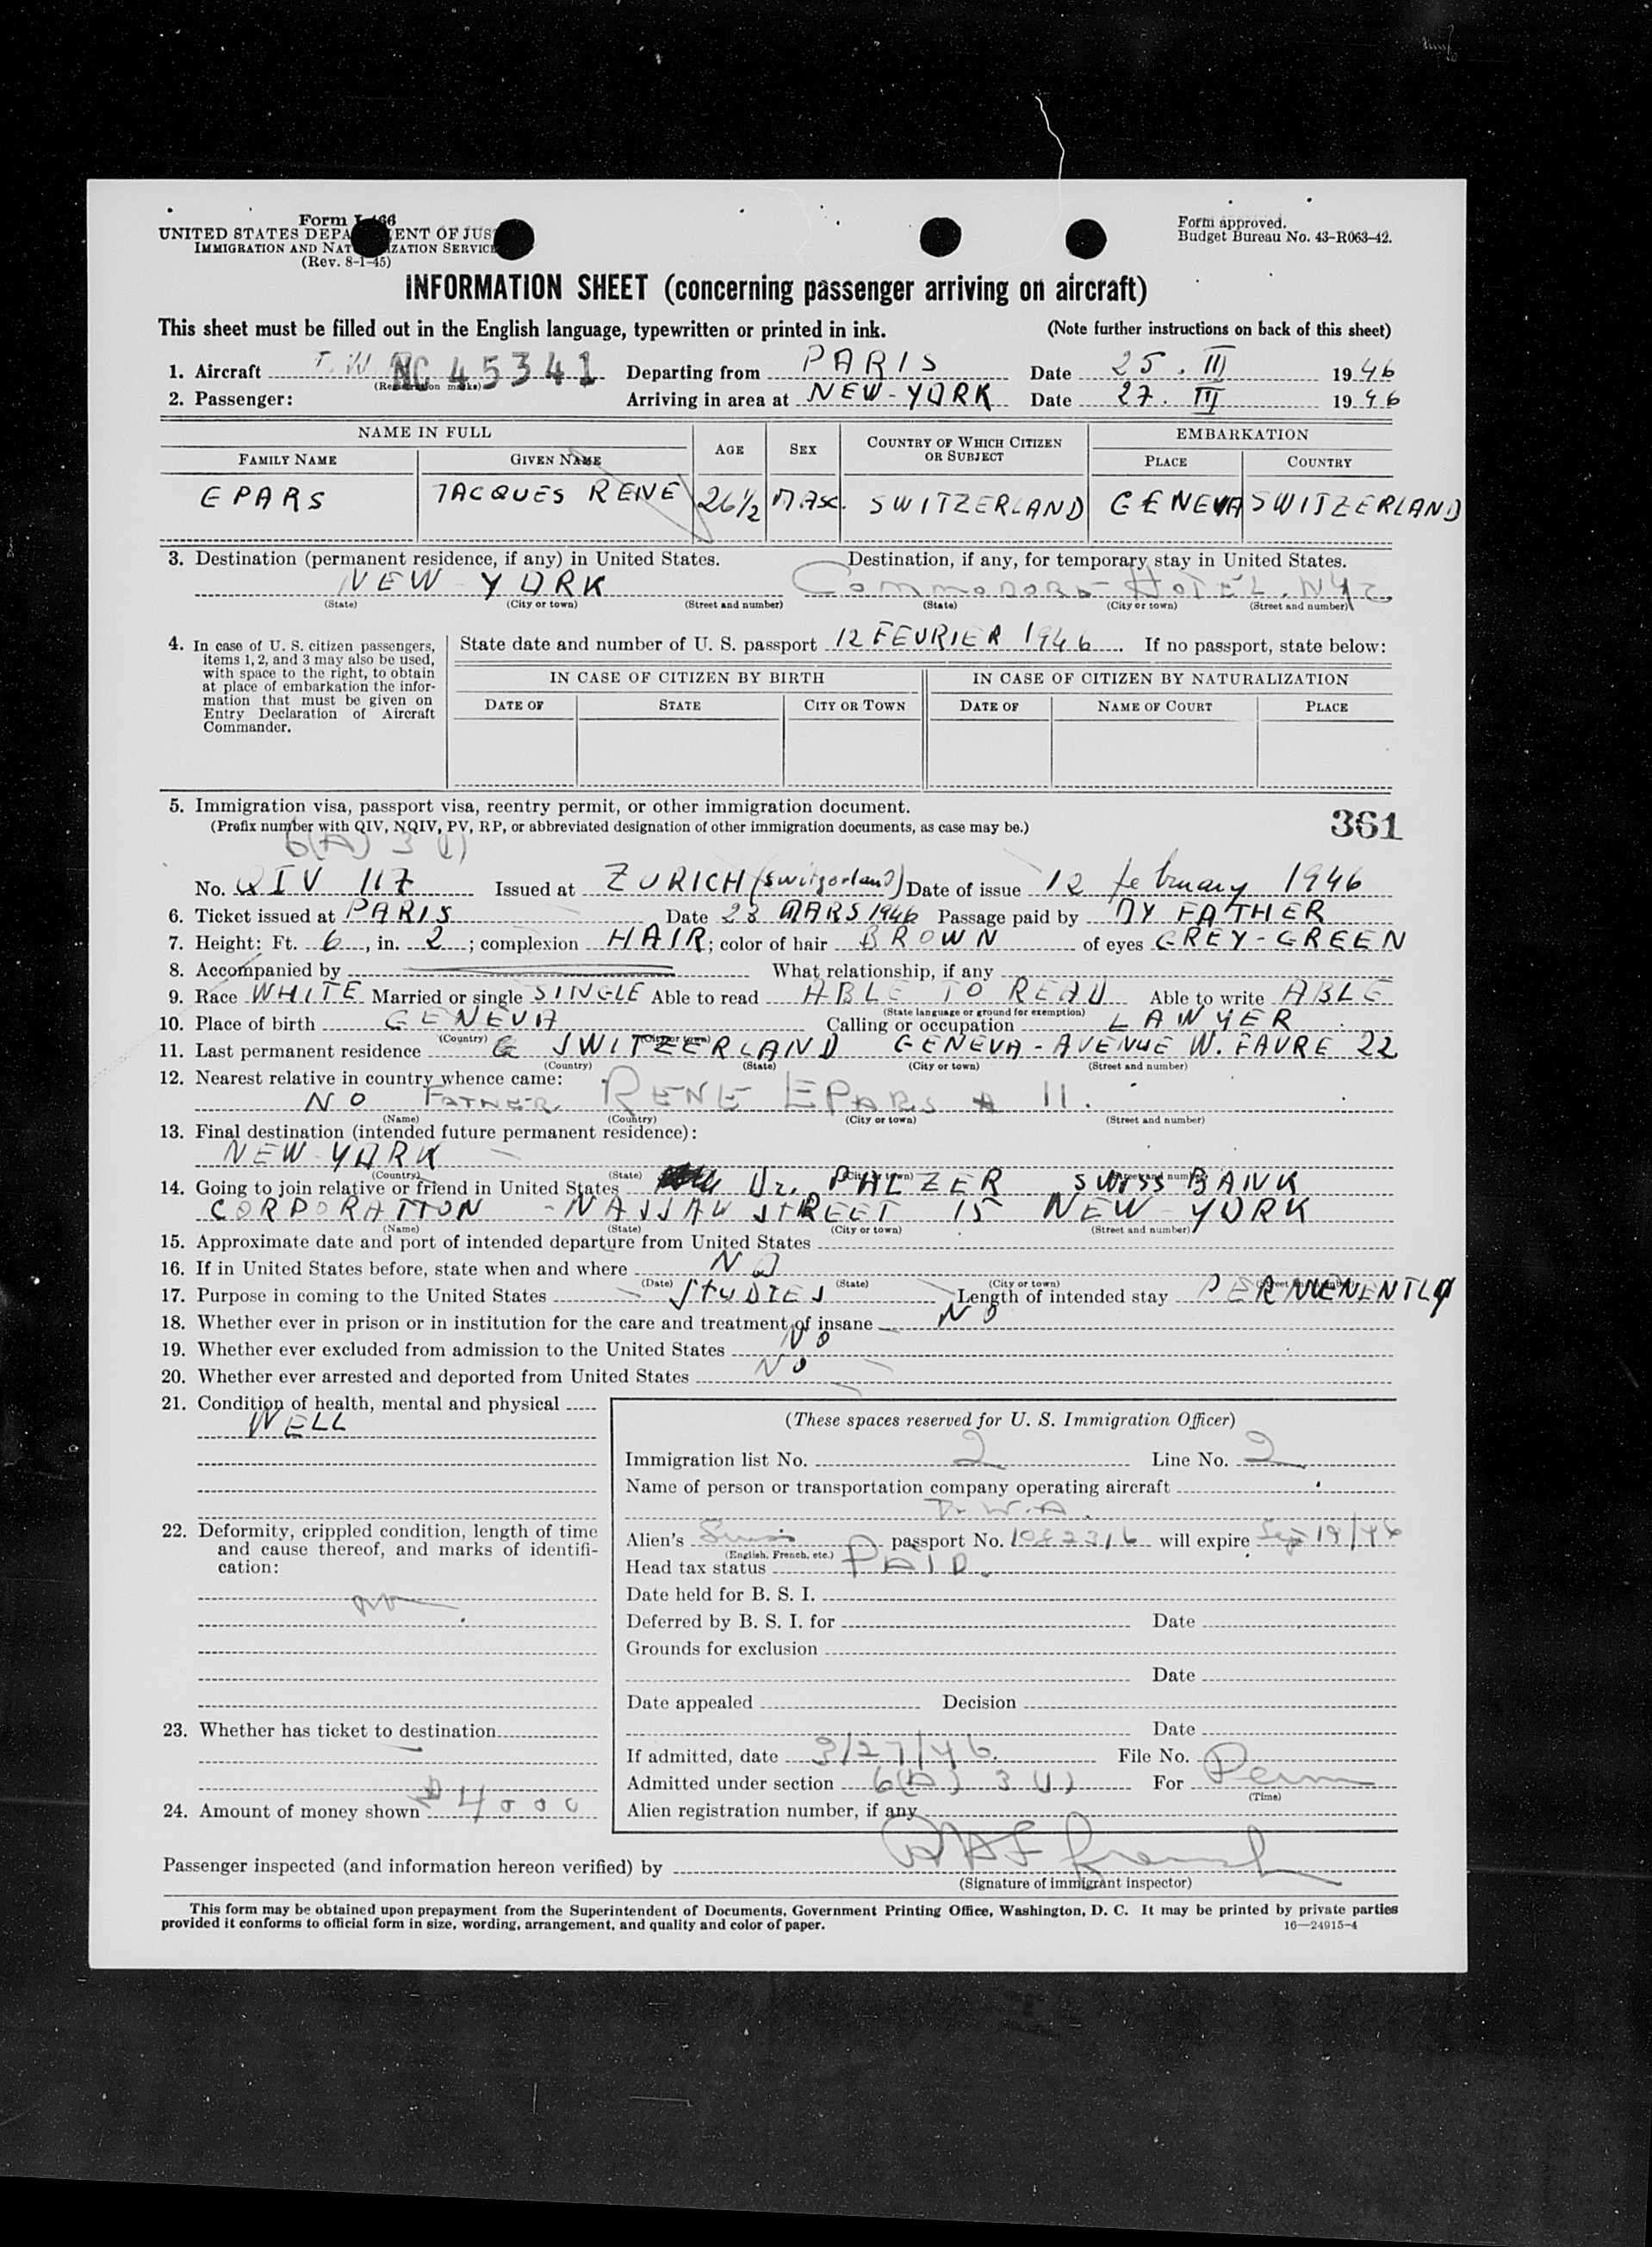 Form I-466
UNITED STATES DEPARTMENT OF JUSTICE
IMMIGRATION AND NATURALIZATION SERVICE
(Rev. 8-1-45)
Form approved.
Budget Bureau No. 43-R063-42.
INFORMATION SHEET (concerning passenger arriving on aircraft)
This sheet must be filled out in the English language, typewritten or printed in ink. (Note further instructions on back of this sheet)
1. Aircraft T.W NC 45341 Departing from PARIS Date 25. III 1946
(Registration marks)
2. Passenger: Arriving in area at NEW-YORK Date 27. III 1946
NAME IN FULL AGE SEX COUNTRY OF WHICH CITIZEN OR SUBJECT EMBARKATION
FAMILY NAME GIVEN NAME PLACE COUNTRY
EPARS JACQUES RENE 26 1/2 MASC. SWITZERLAND GENEVA SWITZERLAND
3. Destination (permanent residence, if any) in United States. Destination, if any, for temporary stay in United States.
NEW YORK COMMODORE HOTEL. NYC
(State) (City or town) (Street and number) (State) (City or town) (Street and number)
4. In case of U. S. citizen passengers,
items 1, 2, and 3 may also be used,
with space to the right, to obtain
at place of embarkation the infor-
mation that must be given on
Entry Declaration of Aircraft
Commander.
State date and number of U. S. passport 12 FEVRIER 1946. If no passport, state below:
IN CASE OF CITIZEN BY BIRTH IN CASE OF CITIZEN BY NATURALIZATION
DATE OF STATE CITY OR TOWN DATE OF NAME OF COURT PLACE
5. Immigration visa, passport visa, reentry permit, or other immigration document.
(Prefix number with QIV, NQIV, PV, RP, or abbreviated designation of other immigration documents, as case may be.)
361
6(A) 3 (1)
No. QIV 117 Issued at ZURICH (Switzerland) Date of issue 12 february 1946
6. Ticket issued at PARIS Date 23 MARS 1946 Passage paid by MY FATHER
7. Height: Ft. 6, in. 2; complexion HAIR; color of hair BROWN of eyes GREY-GREEN
8. Accompanied by What relationship, if any
9. Race WHITE Married or single SINGLE Able to read ABLE TO READ Able to write ABLE
(State language or ground for exemption)
10. Place of birth GENEVA Calling or occupation LAWYER
(Country) (City or town)
11. Last permanent residence SWITZERLAND GENEVA - AVENUE W. FAVRE 22
(Country) (State) (City or town) (Street and number)
12. Nearest relative in country whence came:
NO FATHER. RENE EPARS 11.
(Name) (Country) (City or town) (Street and number)
13. Final destination (intended future permanent residence):
NEW YORK
(Country) (State) (City or town) (Street and number)
14. Going to join relative or friend in United States Dr. PALZER SWISS BANK
CORPORATION - NASSAU STREET 15 NEW YORK
(Name) (State) (City or town) (Street and number)
15. Approximate date and port of intended departure from United States
16. If in United States before, state when and where NO
(Date) (State) (City or town) (Street and number)
17. Purpose in coming to the United States STUDIES Length of intended stay PERMENENTLY
18. Whether ever in prison or in institution for the care and treatment of insane NO
19. Whether ever excluded from admission to the United States NO
20. Whether ever arrested and deported from United States NO
21. Condition of health, mental and physical
WELL
22. Deformity, crippled condition, length of time
and cause thereof, and marks of identifi-
cation:
no
23. Whether has ticket to destination
24. Amount of money shown $4000
(These spaces reserved for U. S. Immigration Officer)
Immigration list No. 2 Line No. 2
Name of person or transportation company operating aircraft
T.W.A.
Alien's Swiss passport No. 1082316 will expire Sep 19/46
(English, French, etc.)
Head tax status PAID.
Date held for B. S. I.
Deferred by B. S. I. for Date
Grounds for exclusion
Date
Date appealed Decision
Date
If admitted, date 3/27/46. File No.
Admitted under section 6(A) 3 (1) For Perm
(Time)
Alien registration number, if any
Passenger inspected (and information hereon verified) by
(Signature of immigrant inspector)
This form may be obtained upon prepayment from the Superintendent of Documents, Government Printing Office, Washington, D. C. It may be printed by private parties
provided it conforms to official form in size, wording, arrangement, and quality and color of paper. 16—24915-4